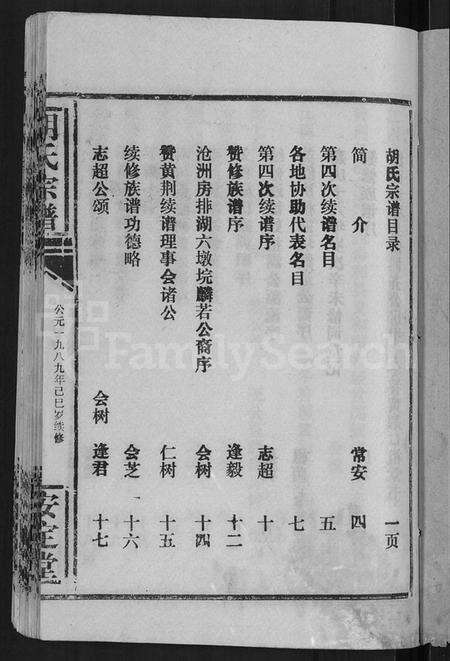 胡氏宗谱目录 一页
简介 常安 四
第四次续谱名目 五
各地协助代表名目 七
第四次续谱序 志超 十
赞修族谱序 逢毅 十二
沧洲房排湖六墩垸麟若公裔序 会树 十四
赞黄荆续谱理事会诸公 仁树 十五
续修族谱功德略 会芝 十六
志超公颂 会树 逢君 十七
胡氏宗谱
公元一九八九年己巳岁续修
安定堂
FamilySearch